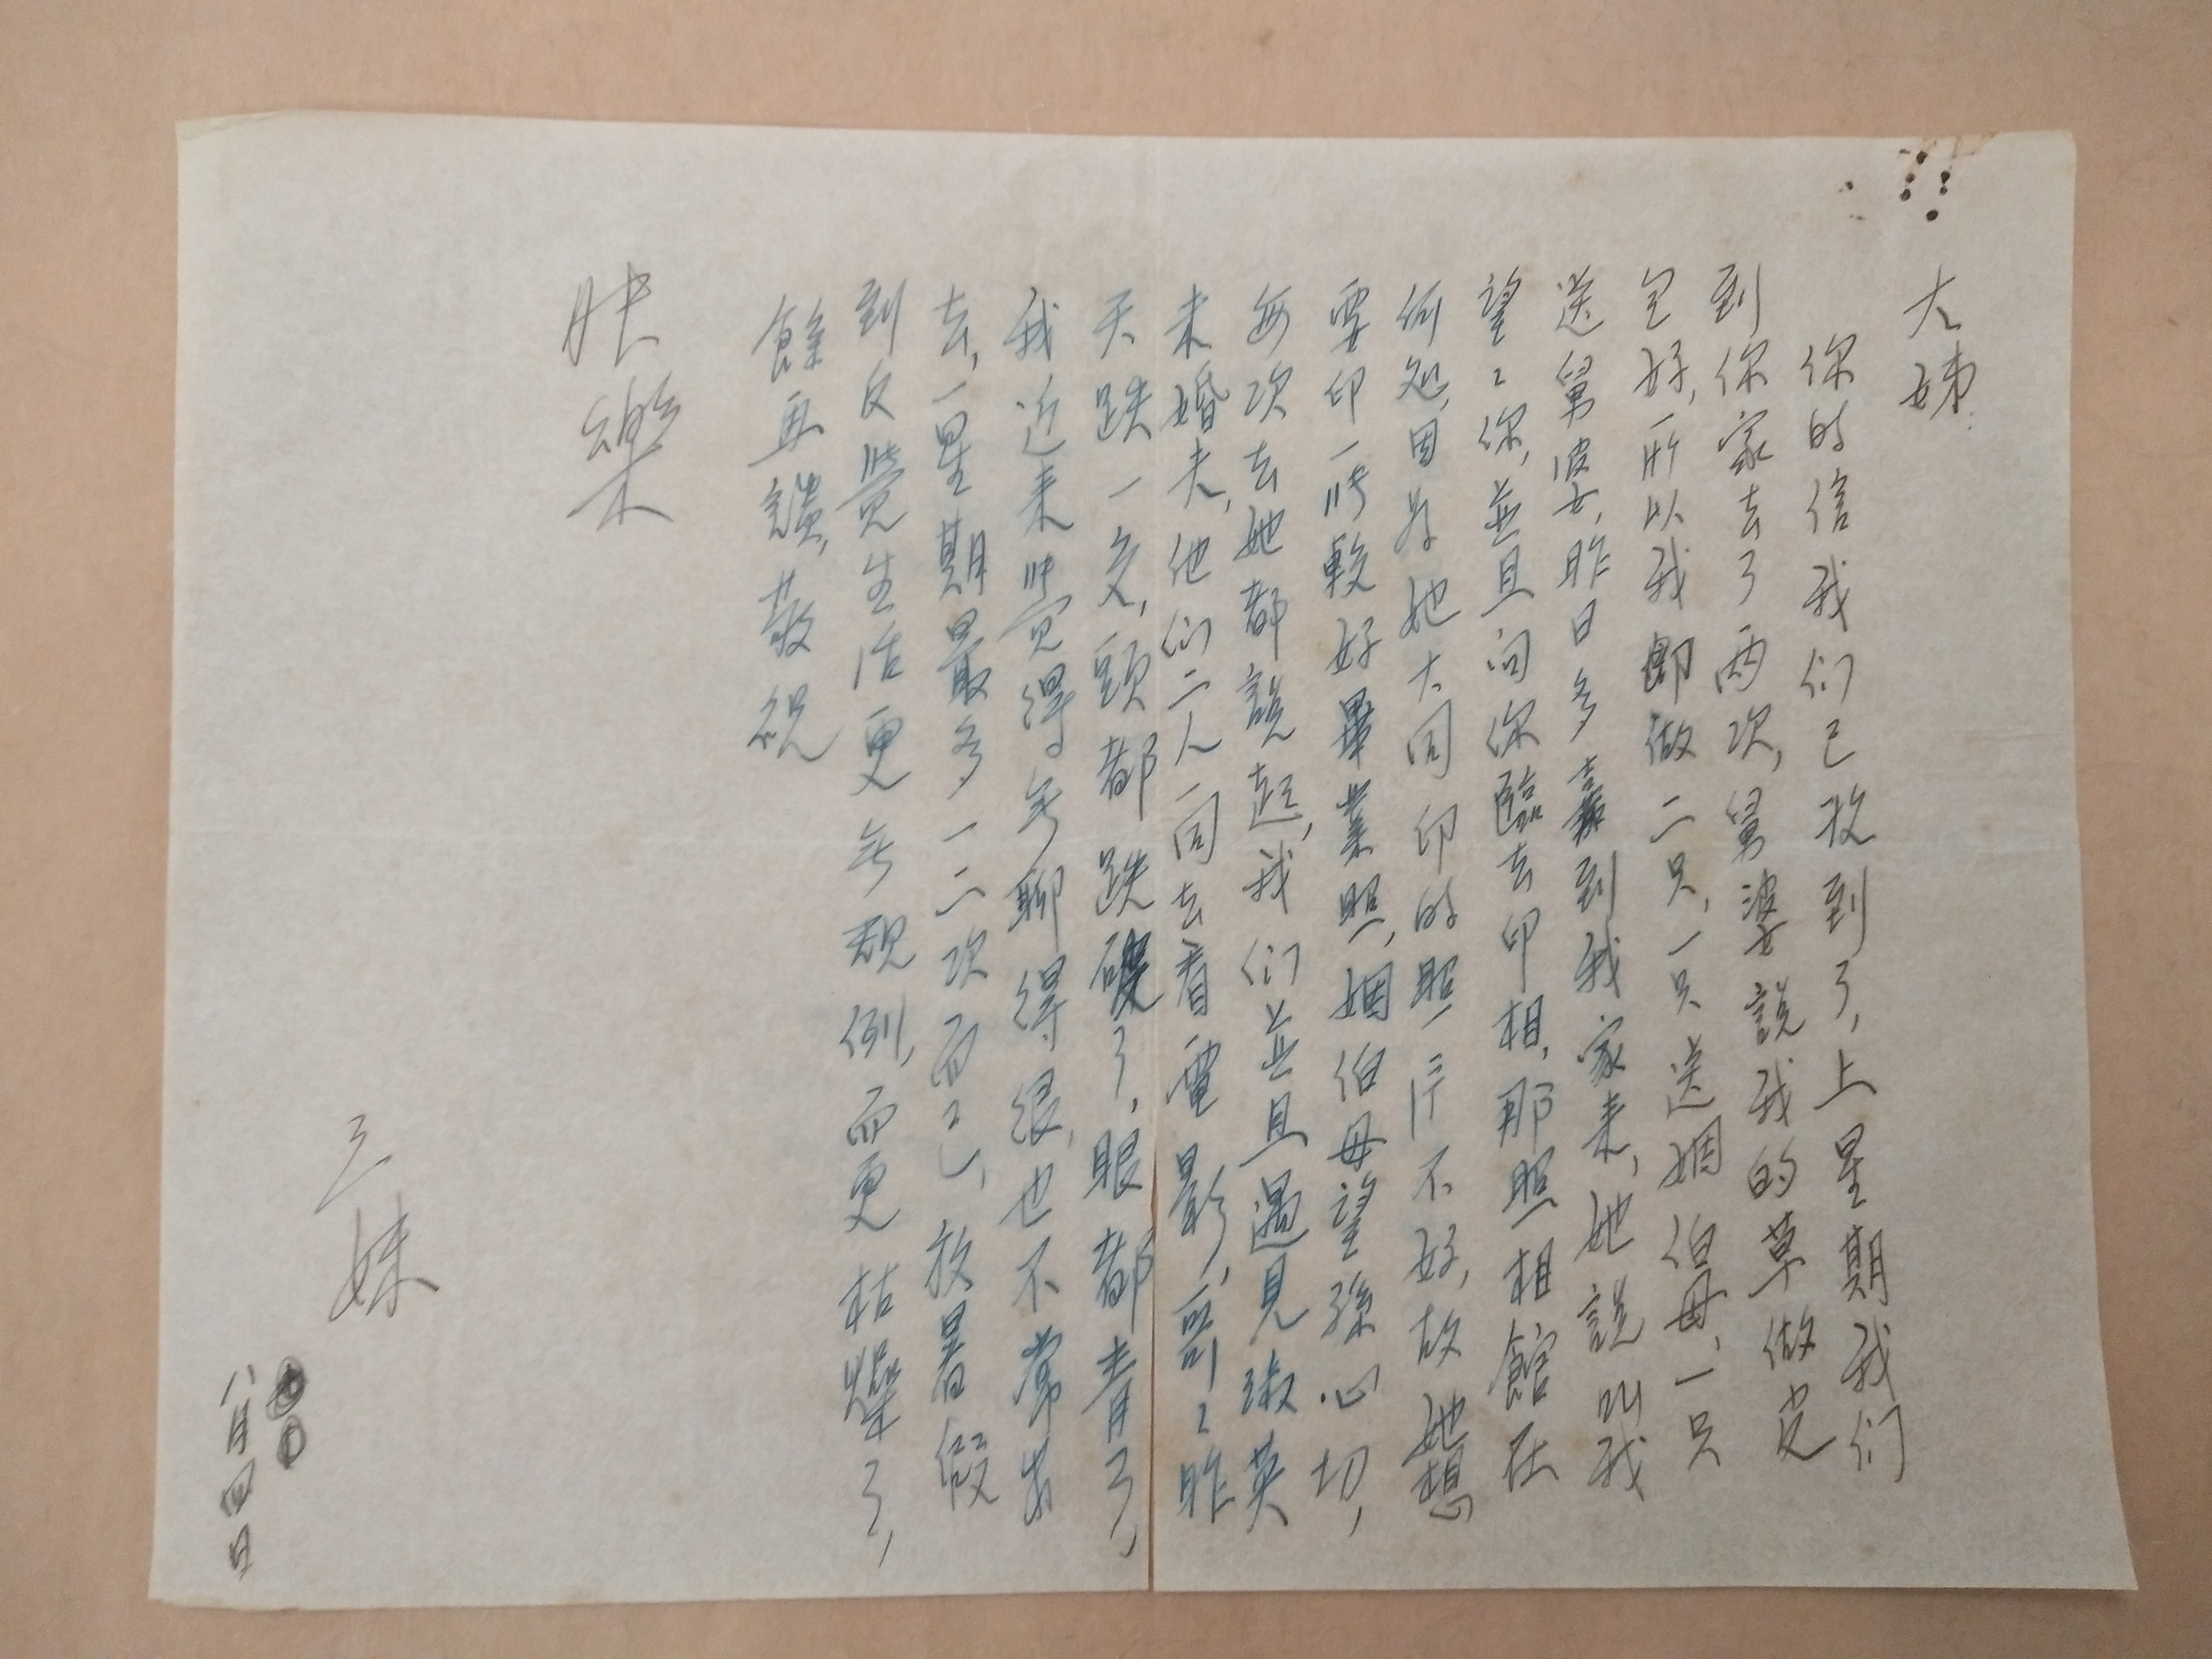 大姊:
你的信我们已收到了,上星期我们
到你家去了两次,舅婆說我的草做
包好,所以我即做二只,一只送姻伯母,一只
送舅婆,昨日多嘉到我家来,她説叫我
望〻你,並且问你臨去印相,那照相館在
何処,因为她大同印的照片不好,故她想
要印一所較好畢業照,姻伯母望孫心切,
每次去她都説起,我们並且遇見淑英
未婚夫,他们二人同去看電影,哥〻昨
天跌一交,頭都跌破了,眼都青了,
我近来覚得无聊得很,也不常出
去,一星期最多一二次而已,放暑假
到反覺生活更无規例,而更枯燥了,
餘再談,敬祝
快樂
三妹
八月四日